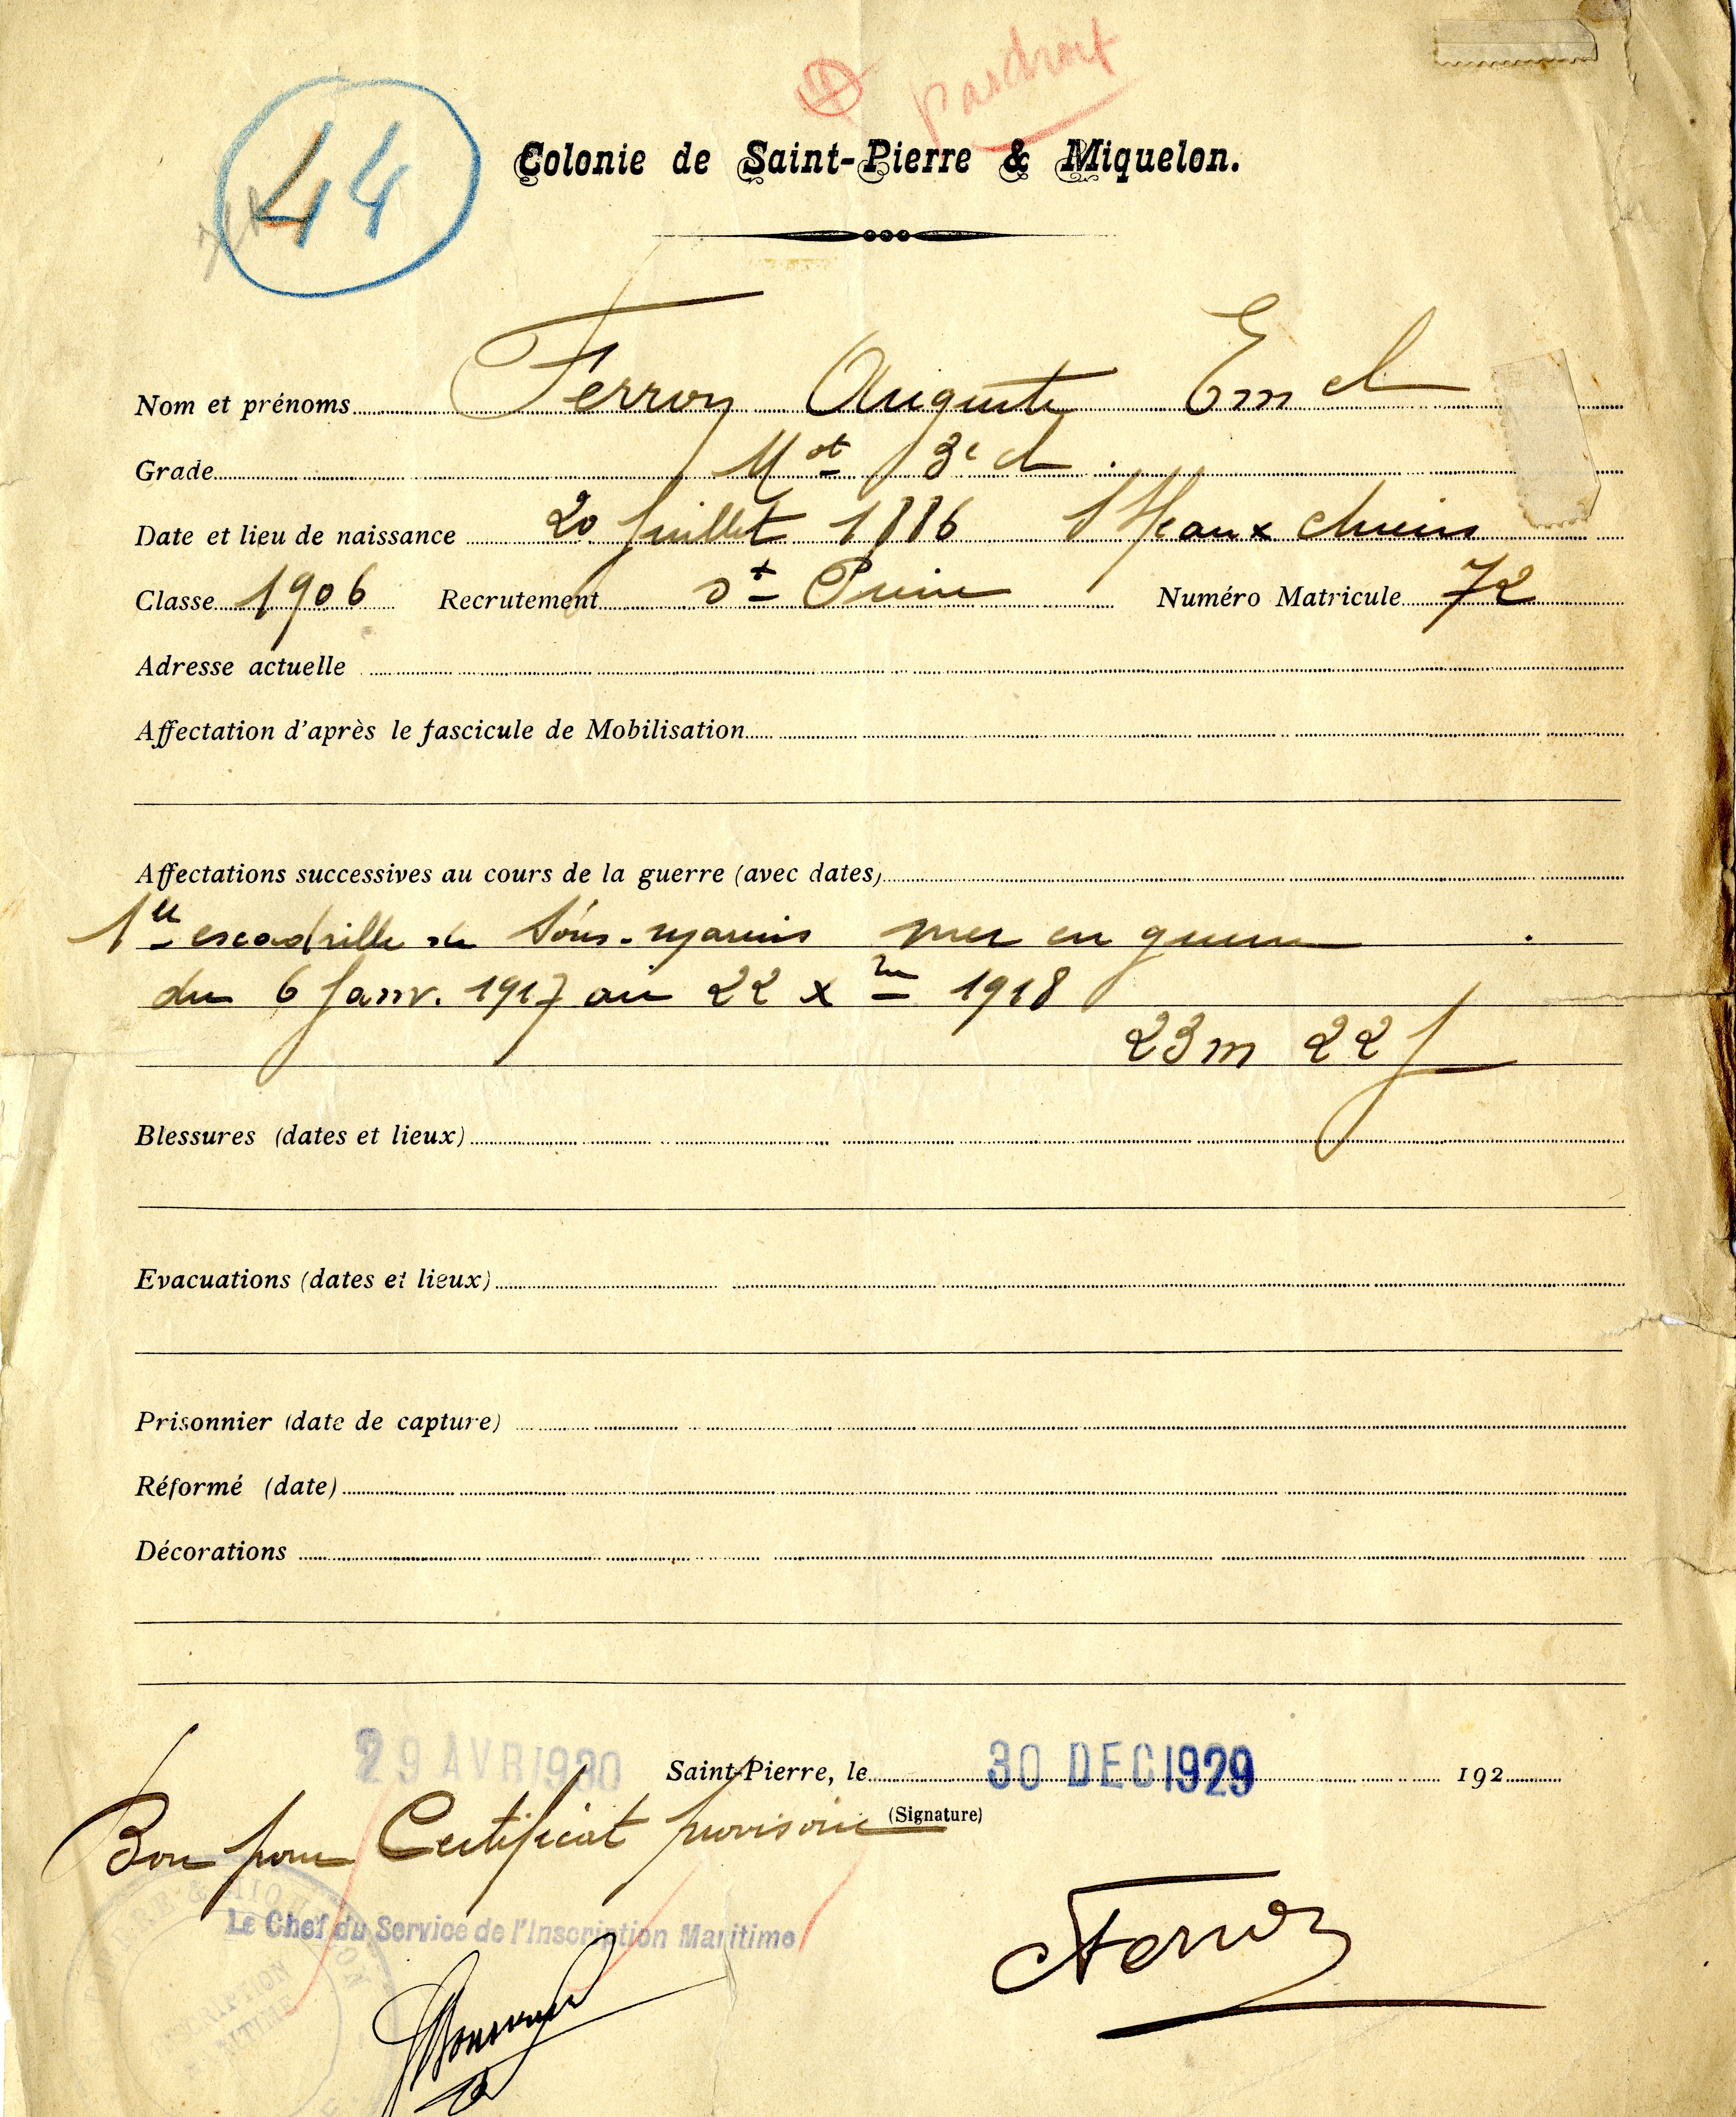 44
pas droit
Colonie de Saint-Pierre & Miquelon.
Nom et prénoms Ferron Auguste Em el
Grade Mot 3e cl.
Date et lieu de naissance 20 Juillet 1886 I. aux chiens
Classe 1906 Recrutement St Pierre Numéro Matricule 72
Adresse actuelle
Affectation d'après le fascicule de Mobilisation
Affectations successives au cours de la guerre (avec dates)
1re escadrille de Sous-marins mer en guerre
du 6 Janv. 1917 au 22 Xbre 1918
23 m 22 j
Blessures (dates et lieux)
Evacuations (dates et lieux)
Prisonnier (date de capture)
Réformé (date)
Décorations
29 AVR 1930 Saint-Pierre, le 30 DEC 1929 192
(Signature)
Bon pour Certificat provisoire
Le Chef du Service de l'Inscription Maritime
PIERRE & MIQUELON
INSCRIPTION
MARITIME
Ferron